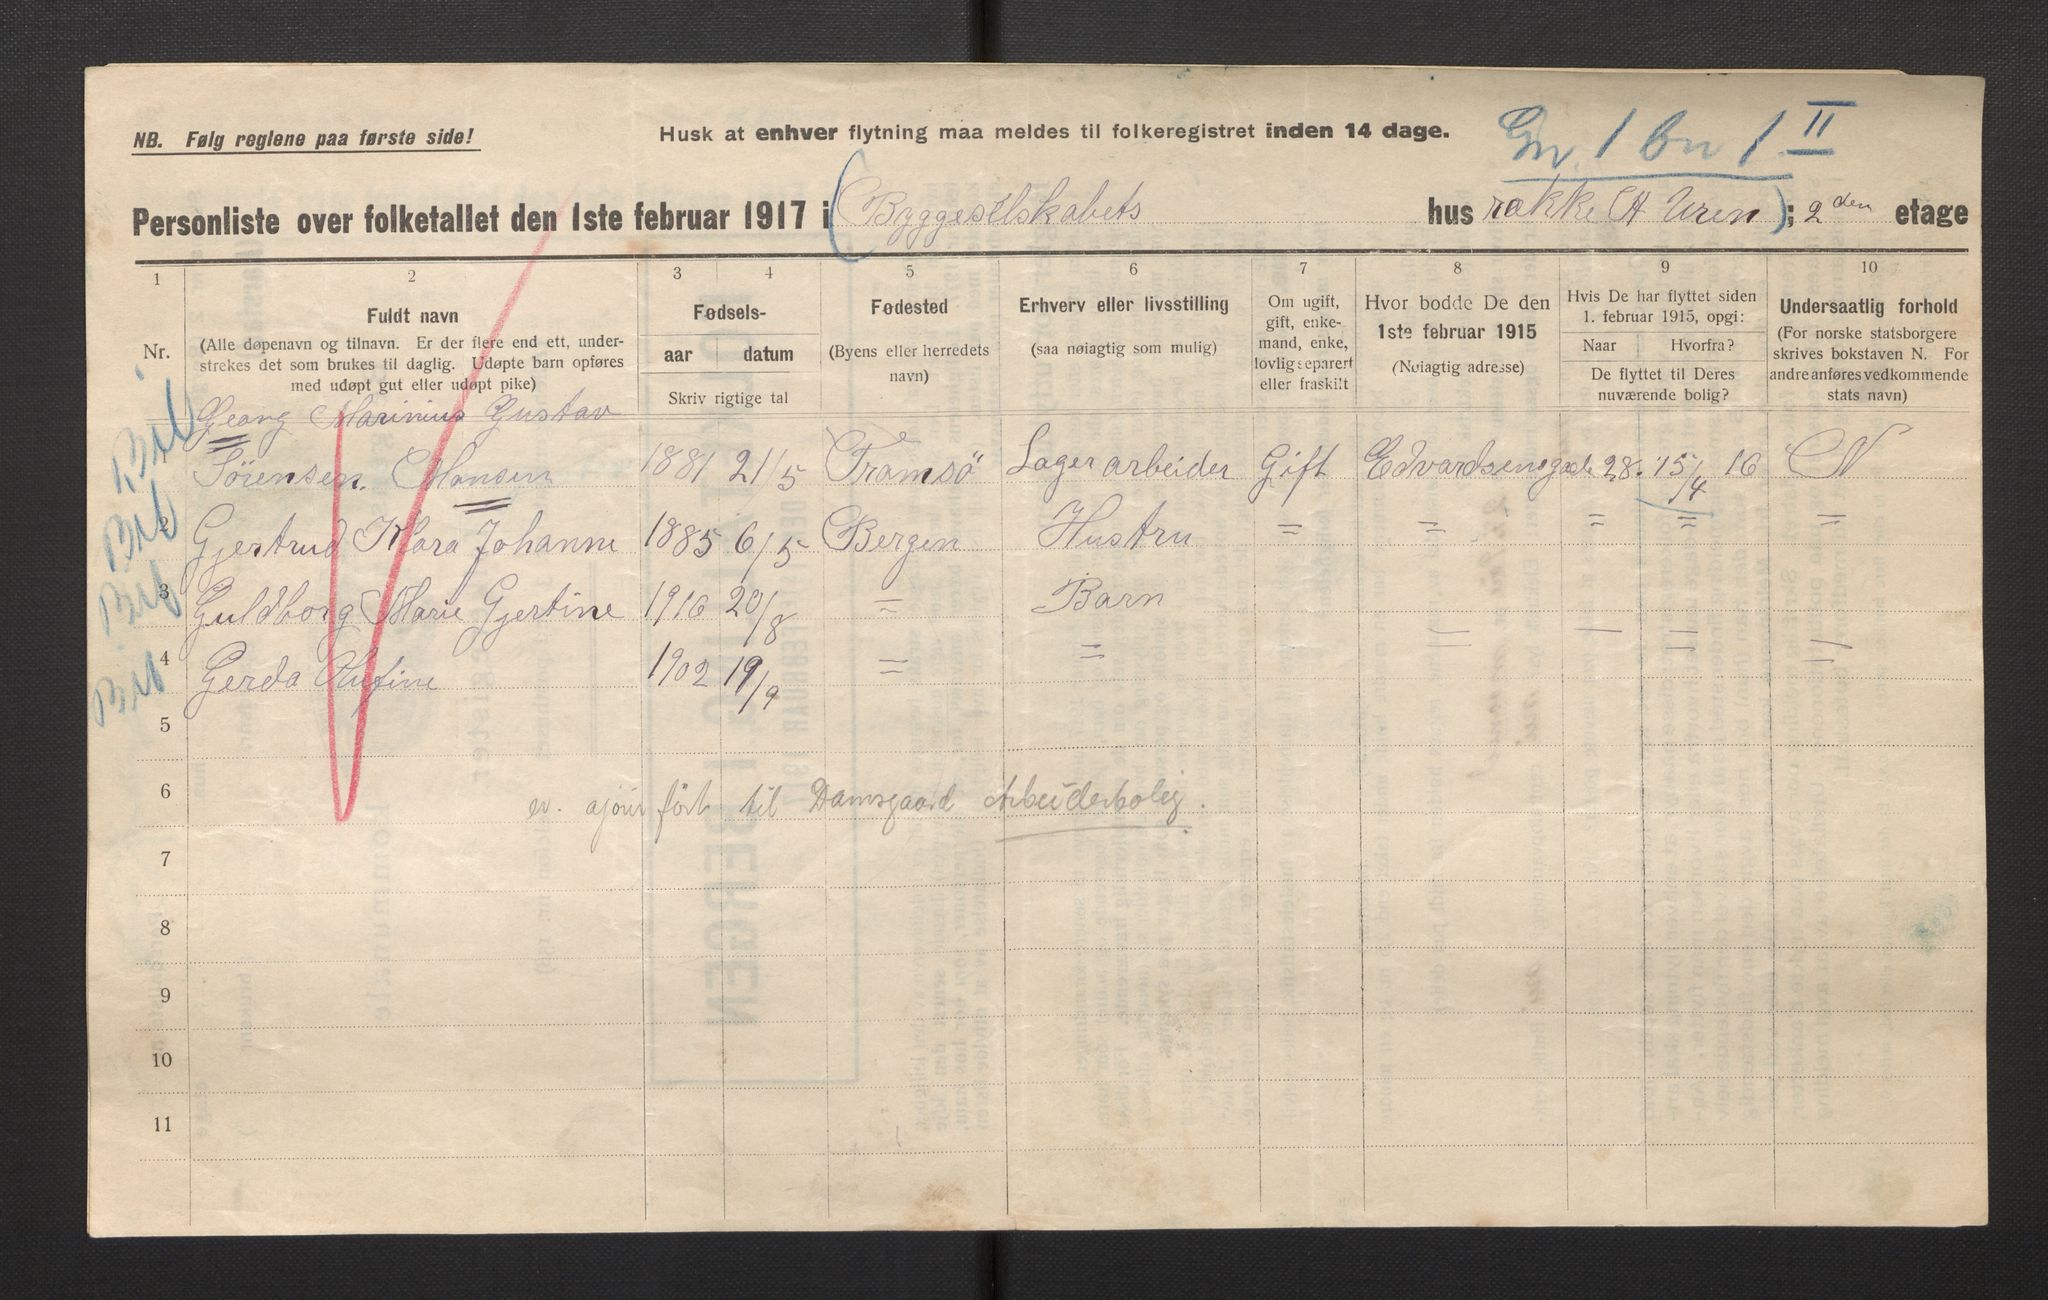 Gn. 1 bn 1 II
NB. Følg reglene paa første side!
Husk at enhver flytning maa meldes til folkeregistret inden 14 dage.
Personliste over folketallet den 1ste februar 1917 i (Byggeselskabets hus rakke A Uren); 2den etage
1 2 3 4 5 6 7 8 9 10
Nr.
Fuldt navn
(Alle døpenavn og tilnavn. Er der flere end ett, under-
strekes det som brukes til daglig. Udøpte barn opføres
med udøpt gut eller udøpt pike)
Fødsels-
aar datum
Skriv rigtige tal
Fødested
(Byens eller herredets
navn)
Erhverv eller livsstilling
(saa nøiagtig som mulig)
Om ugift,
gift, enke-
mand, enke,
lovlig separert
eller fraskilt
Hvor bodde De den
1ste februar 1915
(Nøiagtig adresse)
Hvis De har flyttet siden
1. februar 1915, opgi:
Naar Hvorfra?
De flyttet til Deres
nuværende bolig?
Undersaatlig forhold
(For norske statsborgere
skrives bokstaven N. For
andre anføres vedkommende
stats navn)
Georg Marinius Gustav
Sörensen Hansen 1881 21/5 Tromsö Lagerarbeider Gift Edvardsensgade 28. 15/4 16 N
2 Gjertrud Klara Johanne 1885 6/5 Bergen Hustru = = = = =
3 Guldborg Marie Gjertine 1916 20/8 = Barn
4 Gerda 1902 19/9 = =
5
6 er ajour ført til Damsgaard Arbeiderbolig.
7
8
9
10
11